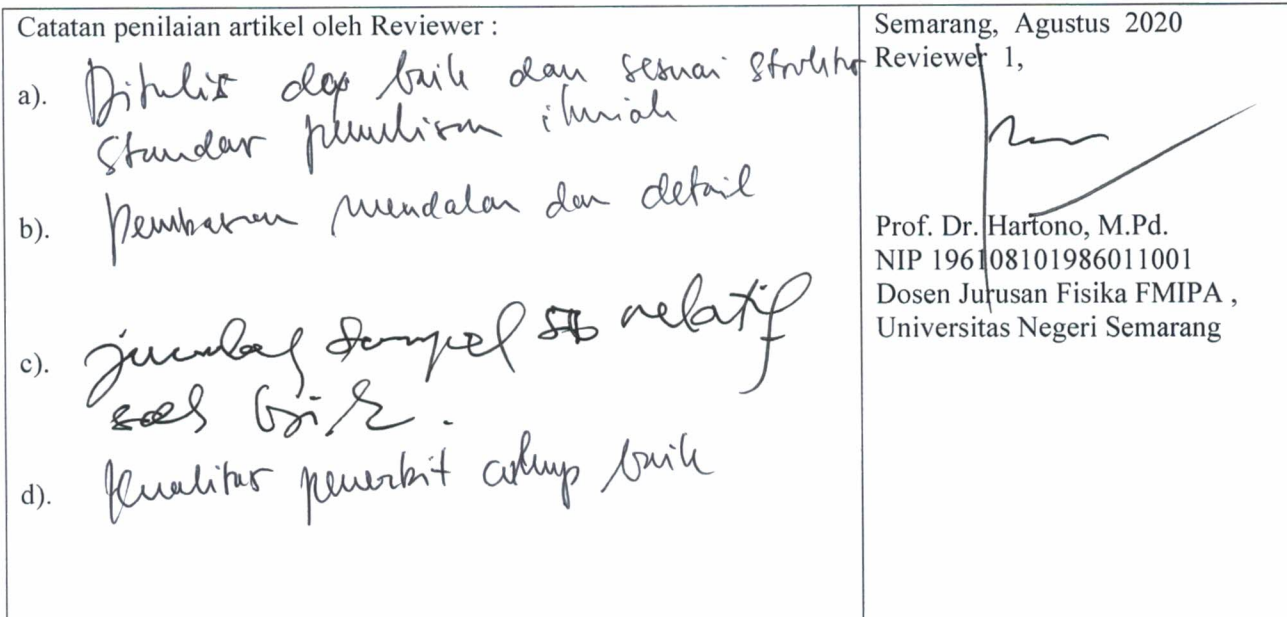 Catatan penilaian artikel oleh Reviewer :
a). Ditulis dgn baik dan sesuai struktur
standar penulisan ilmiah
b). Pembahasan mendalam dan detail
c). jumlah sampel relatif
baik.
d). Kualitas penerbit cukup baik
Semarang, Agustus 2020
Reviewer 1,
Prof. Dr. Hartono, M.Pd.
NIP 196108101986011001
Dosen Jurusan Fisika FMIPA ,
Universitas Negeri Semarang